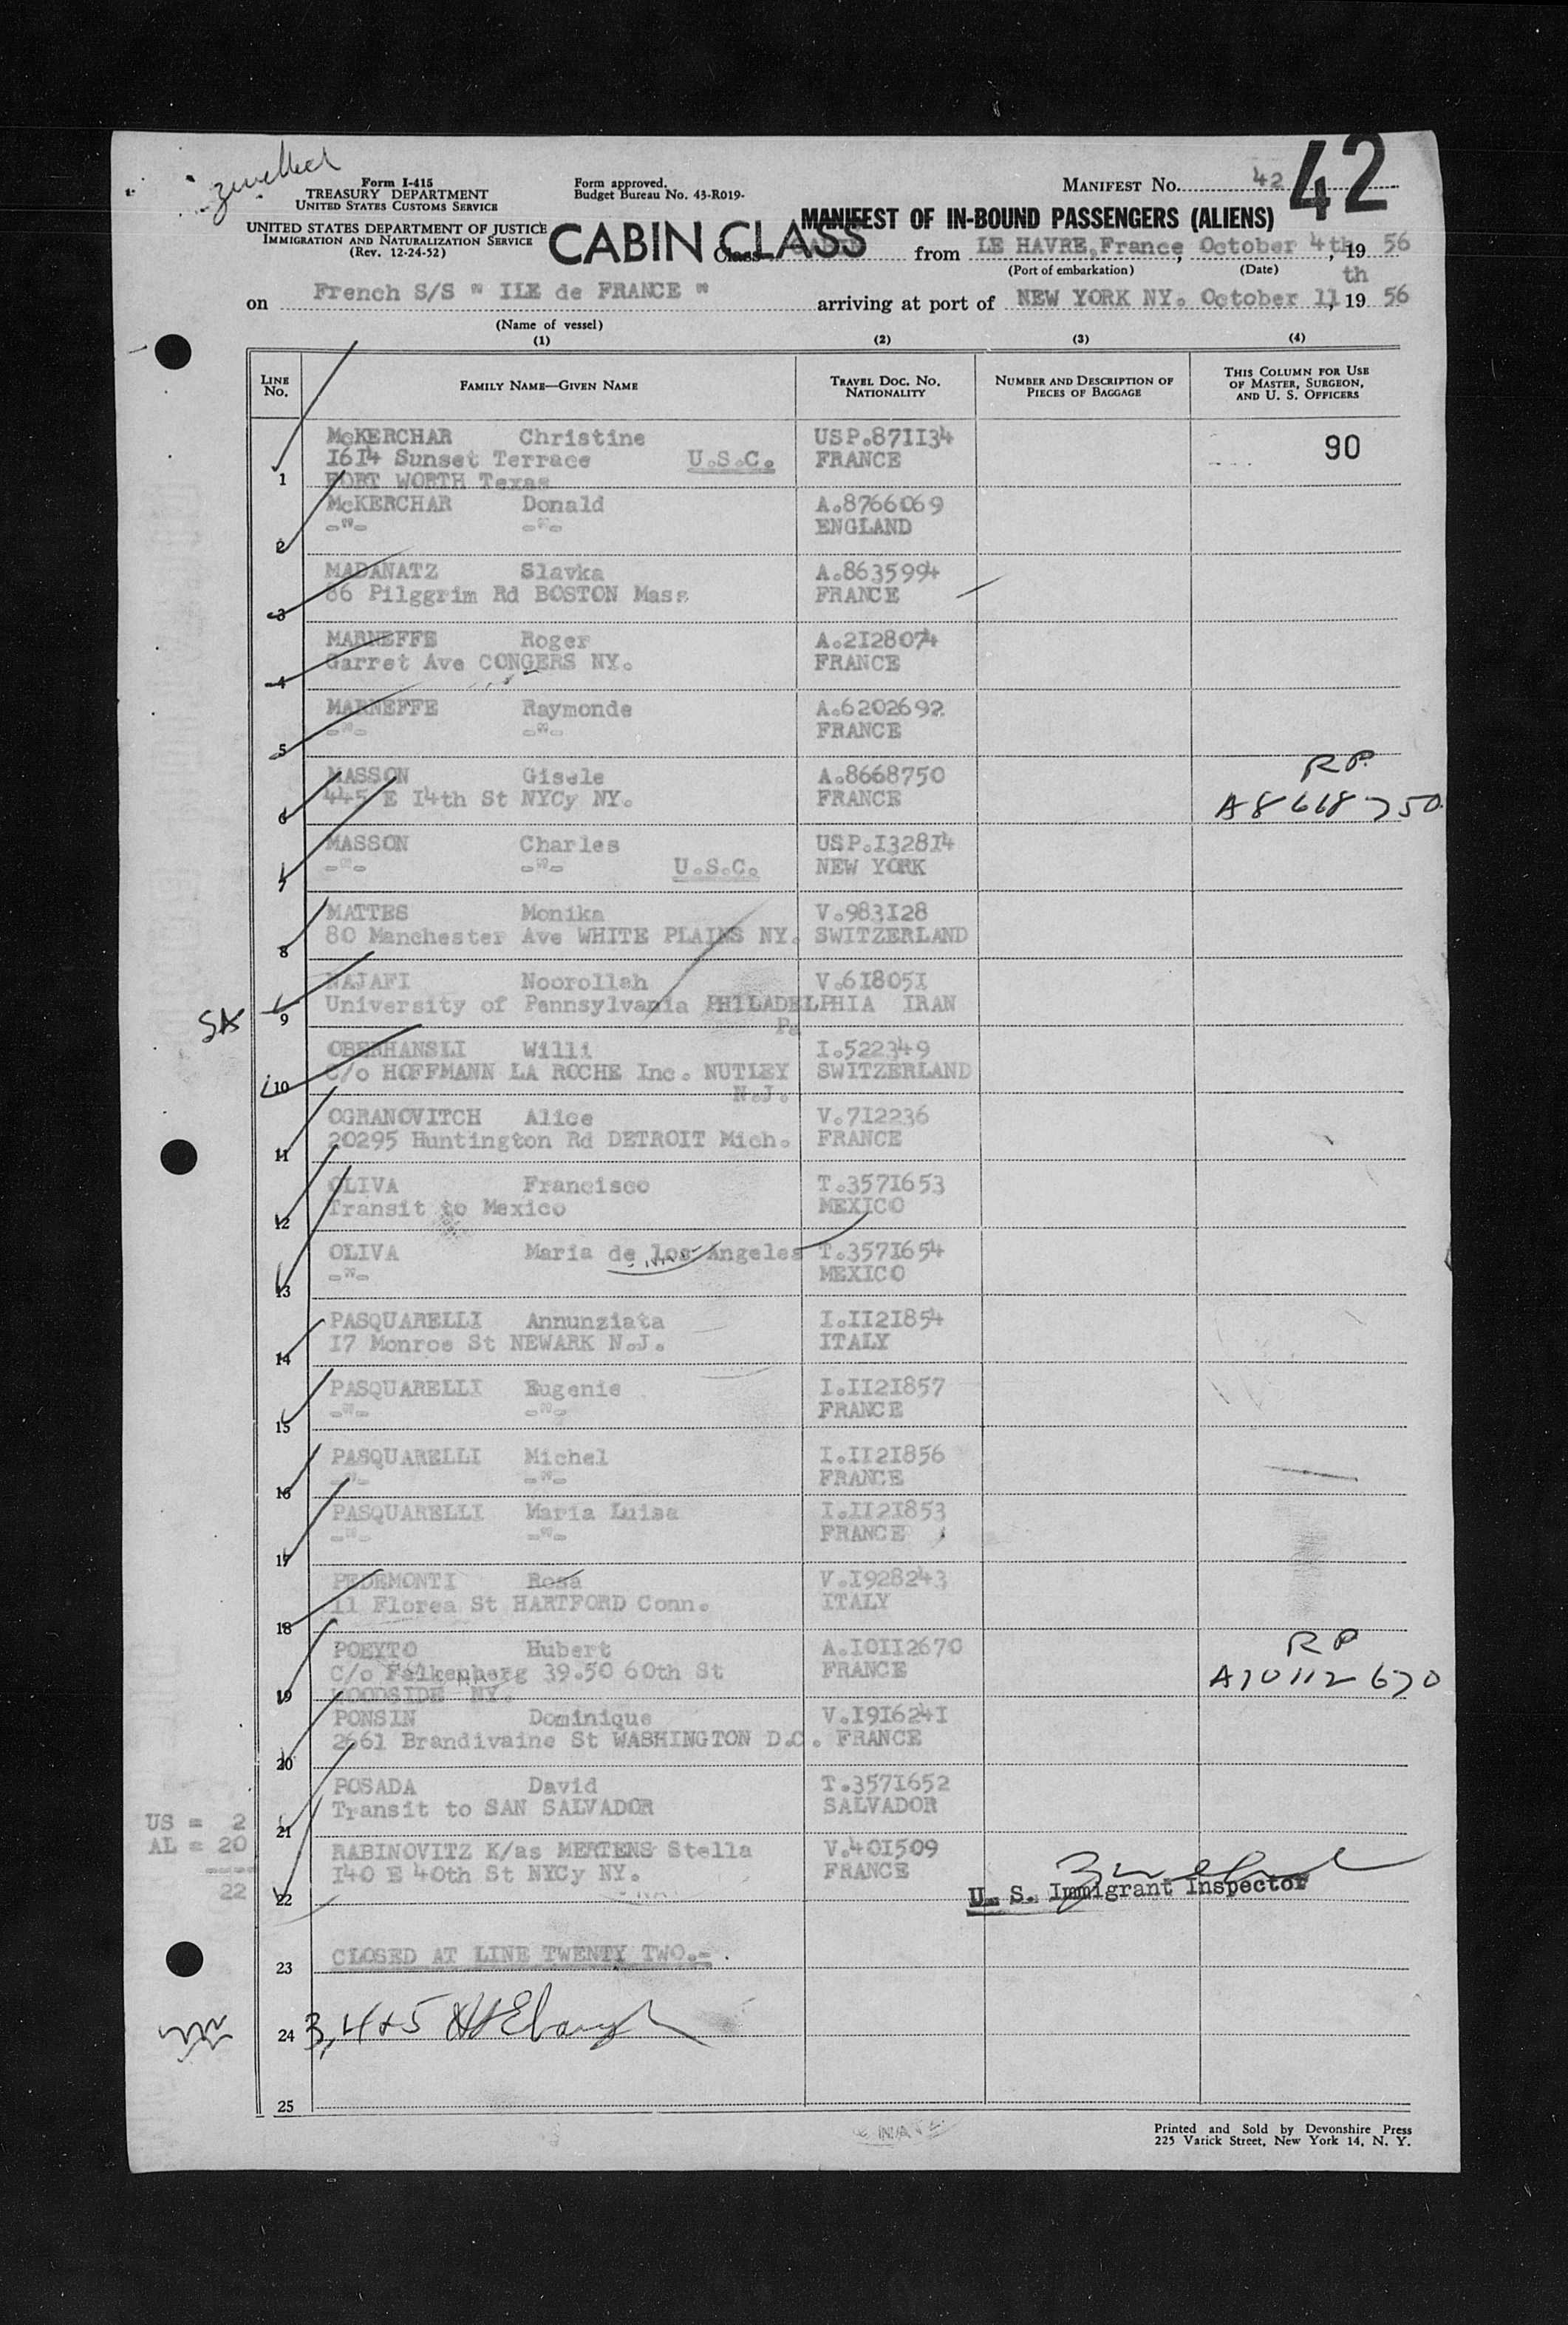 Form I-415
TREASURY DEPARTMENT
UNITED STATES CUSTOMS SERVICE
UNITED STATES DEPARTMENT OF JUSTICE
IMMIGRATION AND NATURALIZATION SERVICE
(Rev. 12-24-52)
Form approved.
Budget Bureau No. 43-R019-
MANIFEST No. 42
42
MANIFEST OF IN-BOUND PASSENGERS (ALIENS)
CABIN CLASS
Class CABIN from LE HAVRE,France, October 4th, 19 56
(Port of embarkation) (Date)
on French S/S " ILE de FRANCE " arriving at port of NEW YORK NY. October 11th, 19 56
(Name of vessel)
(1) (2) (3) (4)
LINE No. FAMILY NAME—GIVEN NAME TRAVEL DOC. NO. NATIONALITY NUMBER AND DESCRIPTION OF PIECES OF BAGGAGE THIS COLUMN FOR USE OF MASTER, SURGEON, AND U. S. OFFICERS
McKERCHAR Christine USP.871134
1614 Sunset Terrace U.S.C. FRANCE 90
1 FORT WORTH Texas
McKERCHAR Donald A.8766069
2 -"- -"- ENGLAND
MADANATZ Slavka A.8635994
3 86 Pilggrim Rd BOSTON Mass FRANCE
MARNEFFE Roger A.2128074
4 Garret Ave CONGERS NY. FRANCE
MARNEFFE Raymonde A.6202692
5 -"- -"- FRANCE
MASSON Gisele A.8668750 RP
6 445 E 14th St NYCy NY. FRANCE A8668750
MASSON Charles USP.132814
7 -"- -"- U.S.C. NEW YORK
MATTES Monika V.983128
8 80 Manchester Ave WHITE PLAINS NY. SWITZERLAND
NAJAFI Noorollah V.618051
SA 9 University of Pennsylvania PHILADELPHIA IRAN
Pa
OBERHANSLI Willi I.522349
10 C/o HOFFMANN LA ROCHE Inc. NUTLEY SWITZERLAND
N.J.
OGRANOVITCH Alice V.712236
11 20295 Huntington Rd DETROIT Mich. FRANCE
OLIVA Francisco T.3571653
12 Transit to Mexico MEXICO
OLIVA Maria de los Angeles T.3571654
13 -"- MEXICO
PASQUARELLI Annunziata I.1121854
14 17 Monroe St NEWARK N.J. ITALY
PASQUARELLI Eugenie I.1121857
15 -"- -"- FRANCE
PASQUARELLI Michel I.1121856
16 -"- -"- FRANCE
PASQUARELLI Maria Luisa I.1121853
17 -"- -"- FRANCE
PEDEMONTI Rosa V.1928243
18 11 Florea St HARTFORD Conn. ITALY
POEYTO Hubert A.10112670 RP
C/o Falkenberg 39.50 60th St FRANCE A10112670
19 WOODSIDE NY.
PONSIN Dominique V.1916241
20 2661 Brandivaine St WASHINGTON D.C. FRANCE
POSADA David T.3571652
21 Transit to SAN SALVADOR SALVADOR
US = 2
AL = 20
22
RABINOVITZ K/as MERTENS Stella V.401509
22 140 E 40th St NYCy NY. FRANCE
U. S. Immigrant Inspector
23 CLOSED AT LINE TWENTY TWO.-
24 3, 4 & 5
25
Printed and Sold by Devonshire Press
225 Varick Street, New York 14, N. Y.